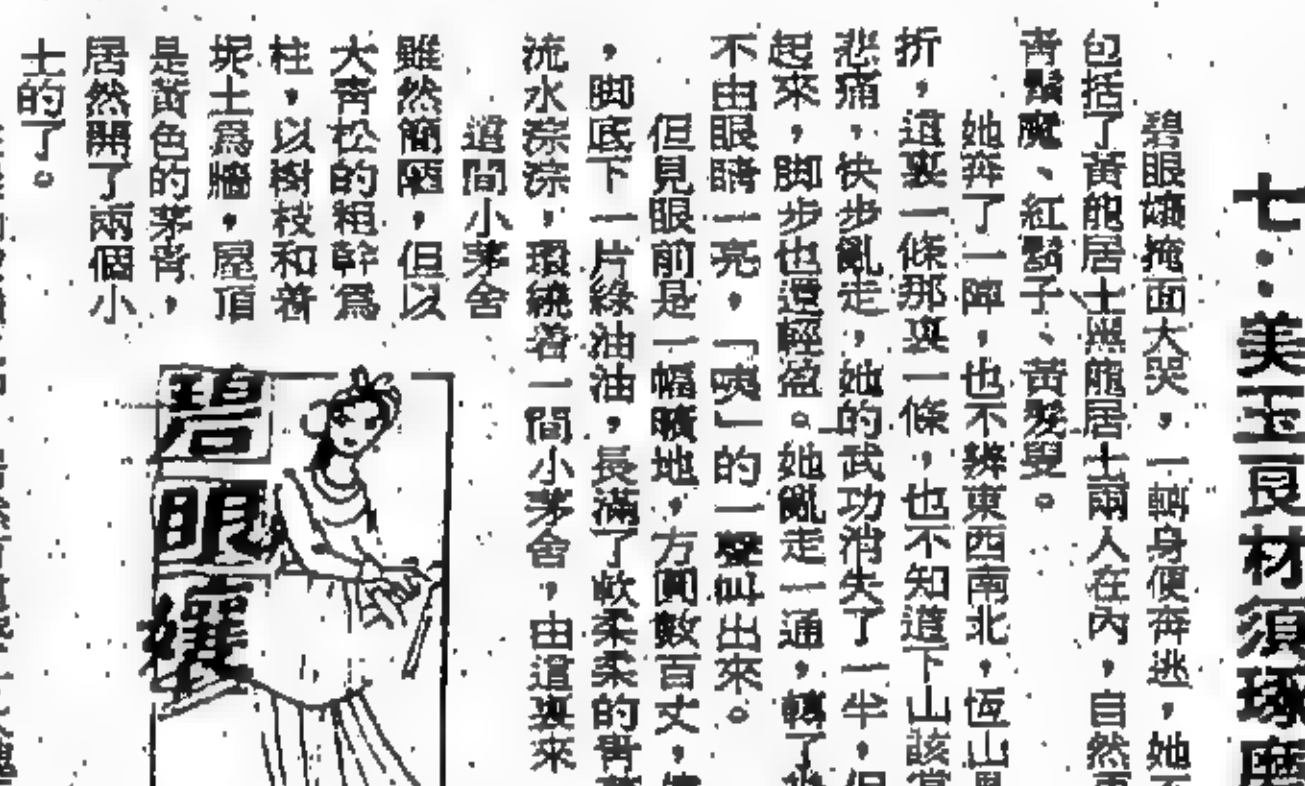 七：美玉良材須琢磨
碧眼孃掩面大哭，一轉身便奔逃，她
包括了黃龍居士黑龍居士兩人在內，自然
青鬚魔、紅鬍子、黃髮叟。
她奔了一陣，也不辨東西南北，恆山
折，這裏一條那裏一條，也不知道下山該
悲痛，快步亂走，她的武功消失了一半，但
起來，脚步也還輕盈。她亂走一通，轉了
不由眼睛一亮，「咦」的一聲叫出來。
但見眼前是一幅曠地，方圓數百丈，
，脚底下一片綠油油，長滿了軟柔柔的青
流水淙淙，環繞着一間小茅舍，由這裏來
這間小茅舍
雖然簡陋，但以
大青松的粗幹爲
柱，以樹枝和着
坭土爲牆，屋頂
是黃色的茅青，
居然開了兩個小
士的了。
碧眼孃